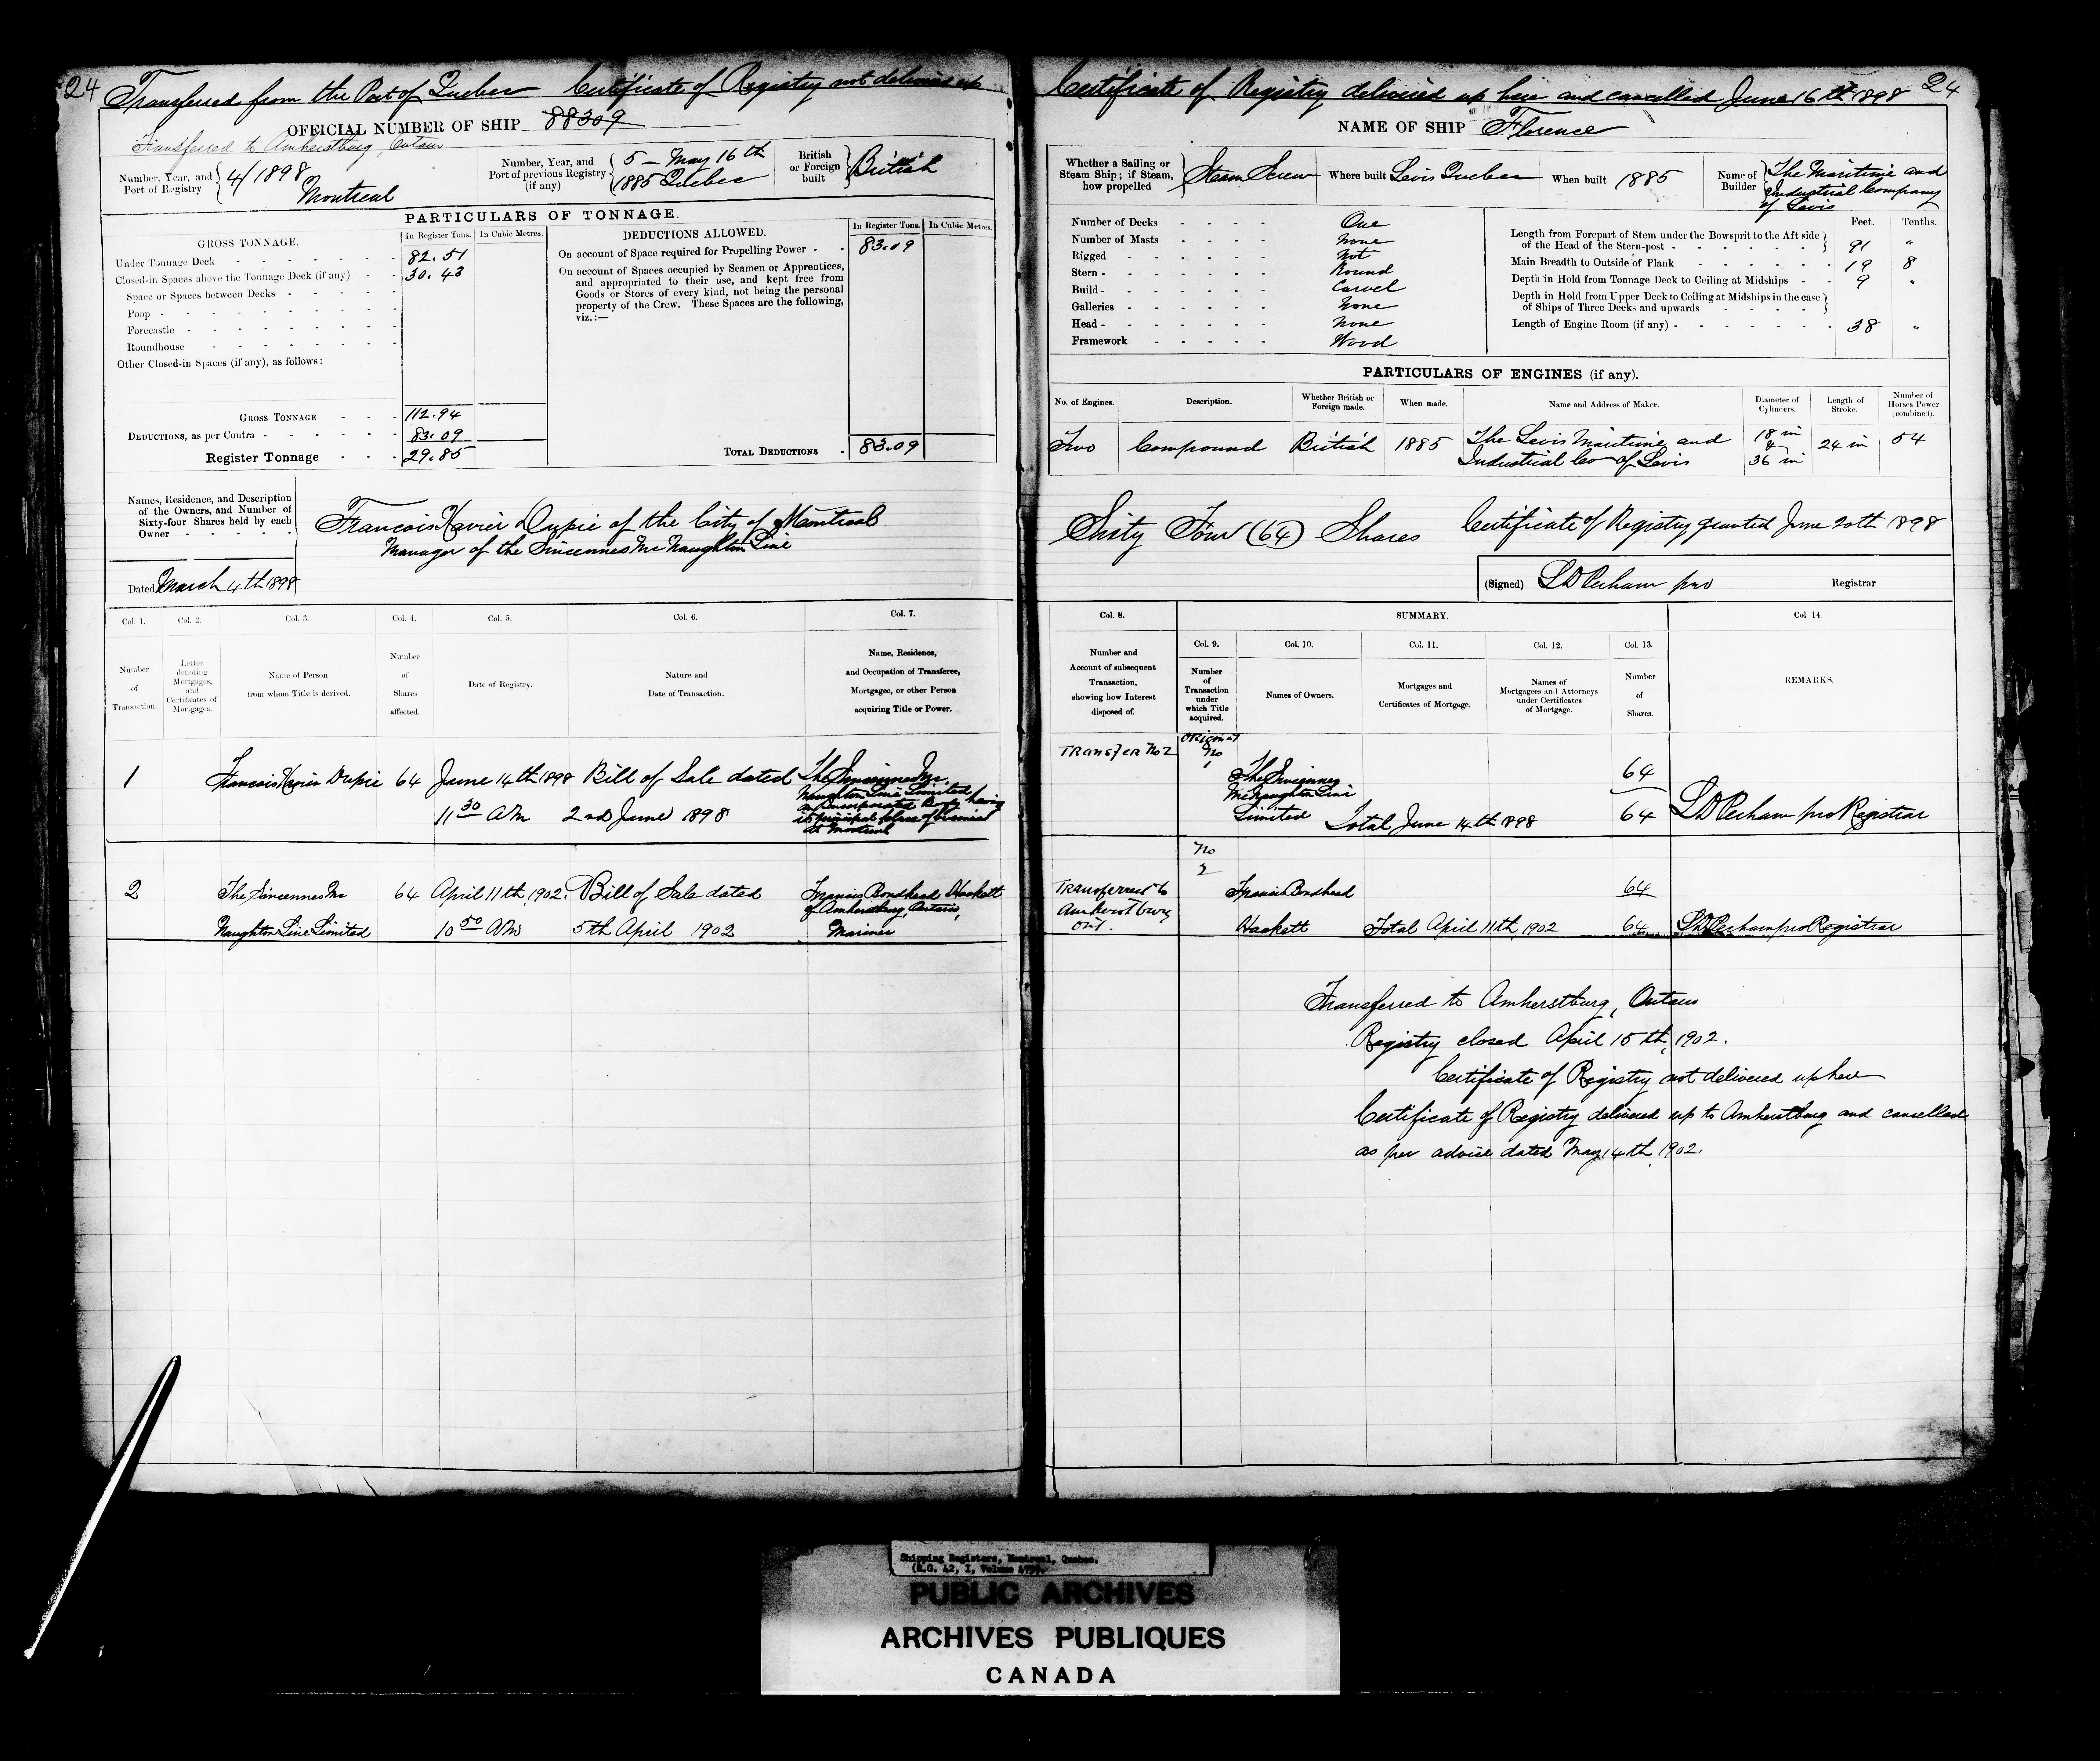 24 Transferred from the Port of Quebec Certificate of Registry not delivered up
OFFICIAL NUMBER OF SHIP 88309
Transferred to Amherstburg, Ontario
Number, Year, and Port of Registry { 4/1898 Montreal
Number, Year, and Port of previous Registry (if any) { 5 - May 16th 1885 Quebec
British or Foreign built } British
PARTICULARS OF TONNAGE.
GROSS TONNAGE. In Register Tons. In Cubic Metres.
Under Tonnage Deck 82.51
Closed-in Spaces above the Tonnage Deck (if any) 30.43
Space or Spaces between Decks
Poop
Forecastle
Roundhouse
Other Closed-in Spaces (if any), as follows:
GROSS TONNAGE 112.94
DEDUCTIONS, as per Contra 83.09
Register Tonnage 29.85
DEDUCTIONS ALLOWED. In Register Tons. In Cubic Metres.
On account of Space required for Propelling Power 83.09
On account of Spaces occupied by Seamen or Apprentices,
and appropriated to their use, and kept free from
Goods or Stores of every kind, not being the personal
property of the Crew. These Spaces are the following,
viz.:—
TOTAL DEDUCTIONS 83.09
Names, Residence, and Description
of the Owners, and Number of
Sixty-four Shares held by each
Owner
Francois Xavier Dupie of the City of Montreal
Manager of the Sincennes Mc Naughton Line
Dated March 4th 1898
Col. 1. Col. 2. Col. 3. Col. 4. Col. 5. Col. 6. Col. 7.
Number of Transaction.
Letter denoting Mortgages, and Certificates of Mortgages.
Name of Person from whom Title is derived.
Number of Shares affected.
Date of Registry.
Nature and Date of Transaction.
Name, Residence, and Occupation of Transferee, Mortgagee, or other Person acquiring Title or Power.
1 Francois Xavier Dupie 64 June 14th 1898 Bill of Sale dated The Sincennes Mc
Naughton Line Limited
an Incorporated Body having
11 30 AM 2nd June 1898 its principal place of business
at Montreal
2 The Sincennes Mc 64 April 11th, 1902. Bill of Sale dated Francis Bondhead Hackett
of Amherstburg, Ontario,
Naughton Line Limited 10 50 AM 5th April 1902 Mariner
Certificate of Registry delivered up here and cancelled June 16th 1898 24
NAME OF SHIP Florence
Whether a Sailing or Steam Ship; if Steam, how propelled } Steam Screw
Where built Levis Quebec
When built 1885
Name of Builder { The Maritime and
Industrial Company
of Levis
Number of Decks One
Number of Masts None
Rigged Not
Stern Round
Build Carvel
Galleries None
Head None
Framework Wood
Feet. Tenths.
Length from Forepart of Stem under the Bowsprit to the Aft side
of the Head of the Stern-post 91 "
Main Breadth to Outside of Plank 19 8
Depth in Hold from Tonnage Deck to Ceiling at Midships 9 "
Depth in Hold from Upper Deck to Ceiling at Midships in the case
of Ships of Three Decks and upwards
Length of Engine Room (if any) 38 "
PARTICULARS OF ENGINES (if any).
No. of Engines. Description. Whether British or Foreign made. When made. Name and Address of Maker. Diameter of Cylinders. Length of Stroke. Number of Horses Power (combined).
Two Compound British 1885 The Levis Maritime and 18 in & 24 in 54
Industrial Co of Levis 36 in
Sixty Four (64) Shares Certificate of Registry granted June 20th 1898
(Signed) LD Perham pro Registrar
Col. 8. SUMMARY. Col 14.
Col. 9. Col. 10. Col. 11. Col. 12. Col. 13.
Number and Account of subsequent Transaction, showing how Interest disposed of.
Number of Transaction under which Title acquired.
Names of Owners.
Mortgages and Certificates of Mortgage.
Names of Mortgagees and Attorneys under Certificates of Mortgage.
Number of Shares.
REMARKS.
Transfer No 2 Original
No
1 The Sincennes 64
McNaughton Line
Limited Total June 14th 1898 64 LD Perham pro Registrar
No
2
Transferred to Francis Bondhead 64
Amherstburg
Ont. Hackett Total April 11th, 1902 64 LD Perham pro Registrar
Transferred to Amherstburg, Ontario
Registry closed April 15th, 1902.
Certificate of Registry not delivered up here
Certificate of Registry delivered up to Amherstburg and cancelled
as per advice dated May 14th, 1902.
Shipping Registers, Montreal, Quebec.
(R.G. 42, I, Volume
PUBLIC ARCHIVES
ARCHIVES PUBLIQUES
CANADA